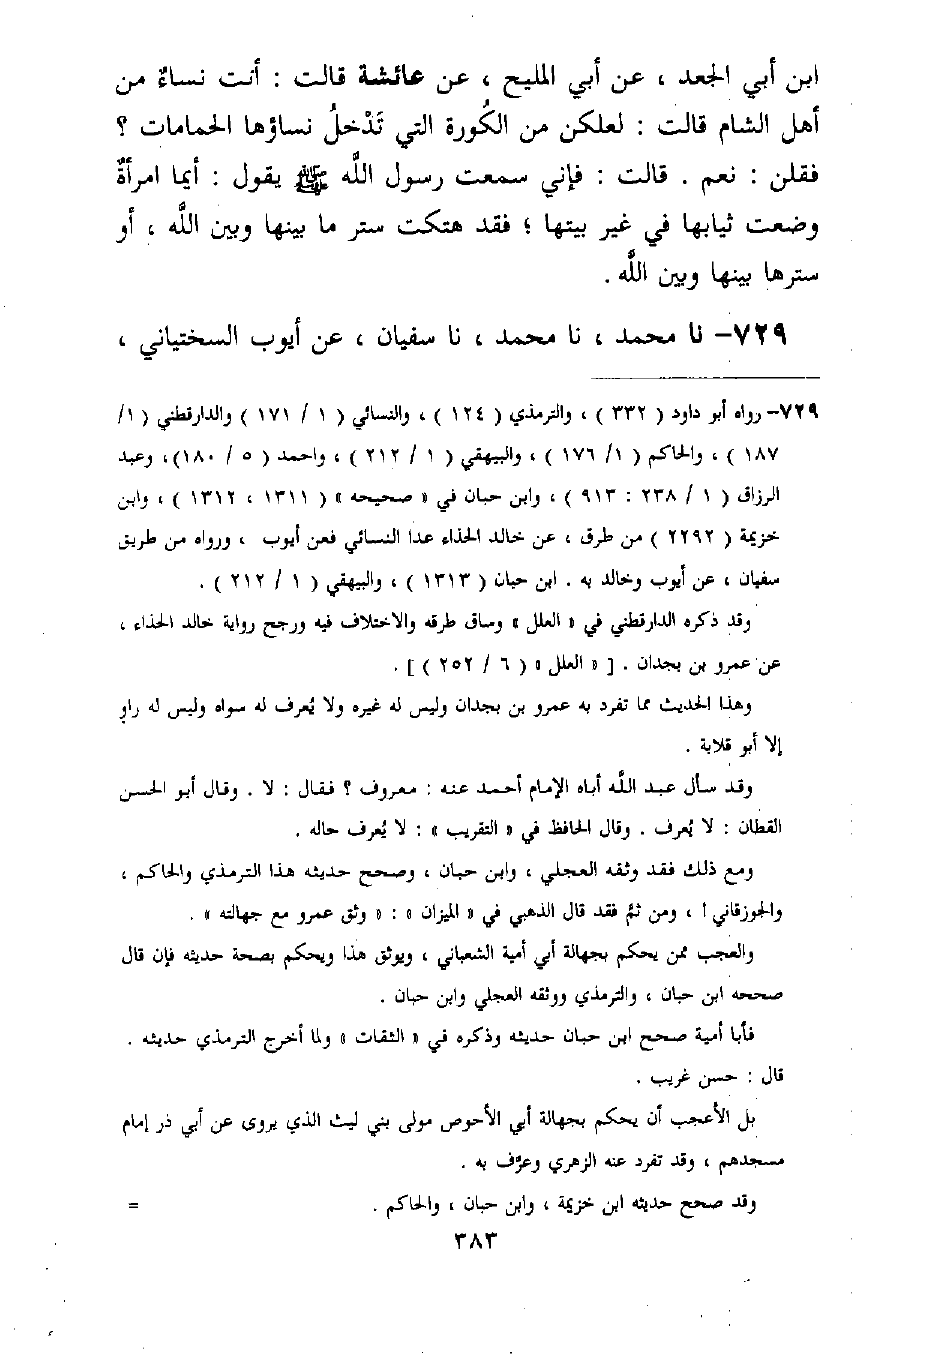 ابن أبي الجعد ، عن أبي المليح ، عن عائشة قالت : أتت نساءٌ من
أهل الشام قالت : لعلكن من الكُورة التي تَدْخلُ نساؤها الحمامات ؟
فقلن : نعم . قالت : فإني سمعت رسول اللَّه ﷺ يقول : أيما امرأةٌ
وضعت ثيابها في غير بيتها ؛ فقد هتكت ستر ما بينها وبين اللَّه ، أو
سترها بينها وبين اللَّه .
٧٢٩- نا محمد ، نا محمد ، نا سفيان ، عن أيوب السختياني ،
٧٢٩- رواه أبو داود ( ٣٣٢ ) ، والترمذي ( ١٢٤ ) ، والنسائي ( ١ / ١٧١ ) والدارقطني ( ١/
١٨٧ ) ، والحاكم ( ١/ ١٧٦ ) ، والبيهقي ( ١ / ٢١٢ ) ، واحمد ( ٥ / ١٨٠)، وعبد
الرزاق ( ١ / ٢٣٨ : ٩١٣ ) ، وابن حبان في « صحيحه » ( ١٣١١ ، ١٣١٢ ) ، وابن
خزيمة ( ٢٢٩٢ ) من طرق ، عن خالد الحذاء عدا النسائي فعن أيوب ، ورواه من طريق
سفيان ، عن أيوب وخالد به . ابن حبان ( ١٣١٣ ) ، والبيهقي ( ١ / ٢١٢ ) .
وقد ذكره الدارقطني في « العلل » وساق طرقه والاختلاف فيه ورجح رواية خالد الحذاء ،
عن عمرو بن بجدان . [ « العلل » ( ٦ / ٢٥٢ ) ] .
وهذا الحديث مما تفرد به عمرو بن بجدان وليس له غيره ولا يُعرف له سواه وليس له راوٍ
إلا أبو قلابة .
وقد سأل عبد اللَّه أباه الإمام أحمد عنه : معروف ؟ فقال : لا . وقال أبو الحسن
القطان : لا يُعرف . وقال الحافظ في « التقريب » : لا يُعرف حاله .
ومع ذلك فقد وثقه العجلي ، وابن حبان ، وصحح حديثه هذا الترمذي والحاكم ،
والجوزقاني ! ، ومن ثمَّ فقد قال الذهبي في « الميزان » : « وثق عمرو مع جهالته » .
والعجب ممن يحكم بجهالة أبي أمية الشعباني ، ويوثق هذا ويحكم بصحة حديثه فإن قال
صححه ابن حبان ، والترمذي ووثقه العجلي وابن حبان .
فأبا أمية صحح ابن حبان حديثه وذكره في « الثقات » ولما أخرج الترمذي حديثه .
قال : حسن غريب .
بل الأعجب أن يحكم بجهالة أبي الأحوص مولى بني ليث الذي يروى عن أبي ذر إمام
مسجدهم ، وقد تفرد عنه الزهري وعرَّف به .
وقد صحح حديثه ابن خزيمة ، وابن حبان ، والحاكم . =
٣٨٣